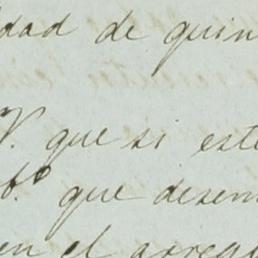 dad de quin
V. que si este
bº que desem
en el arregl